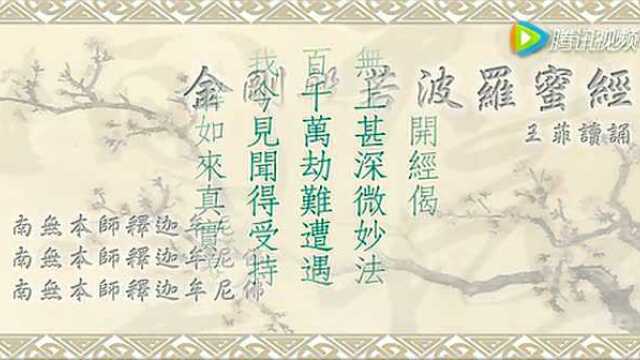 腾讯视频
金剛般若波羅蜜經
王菲讀誦
開經偈
無上甚深微妙法
百千萬劫難遭遇
我今見聞得受持
解如來真實
南無本師釋迦牟尼
南無本師釋迦牟尼
南無本師釋迦牟尼佛